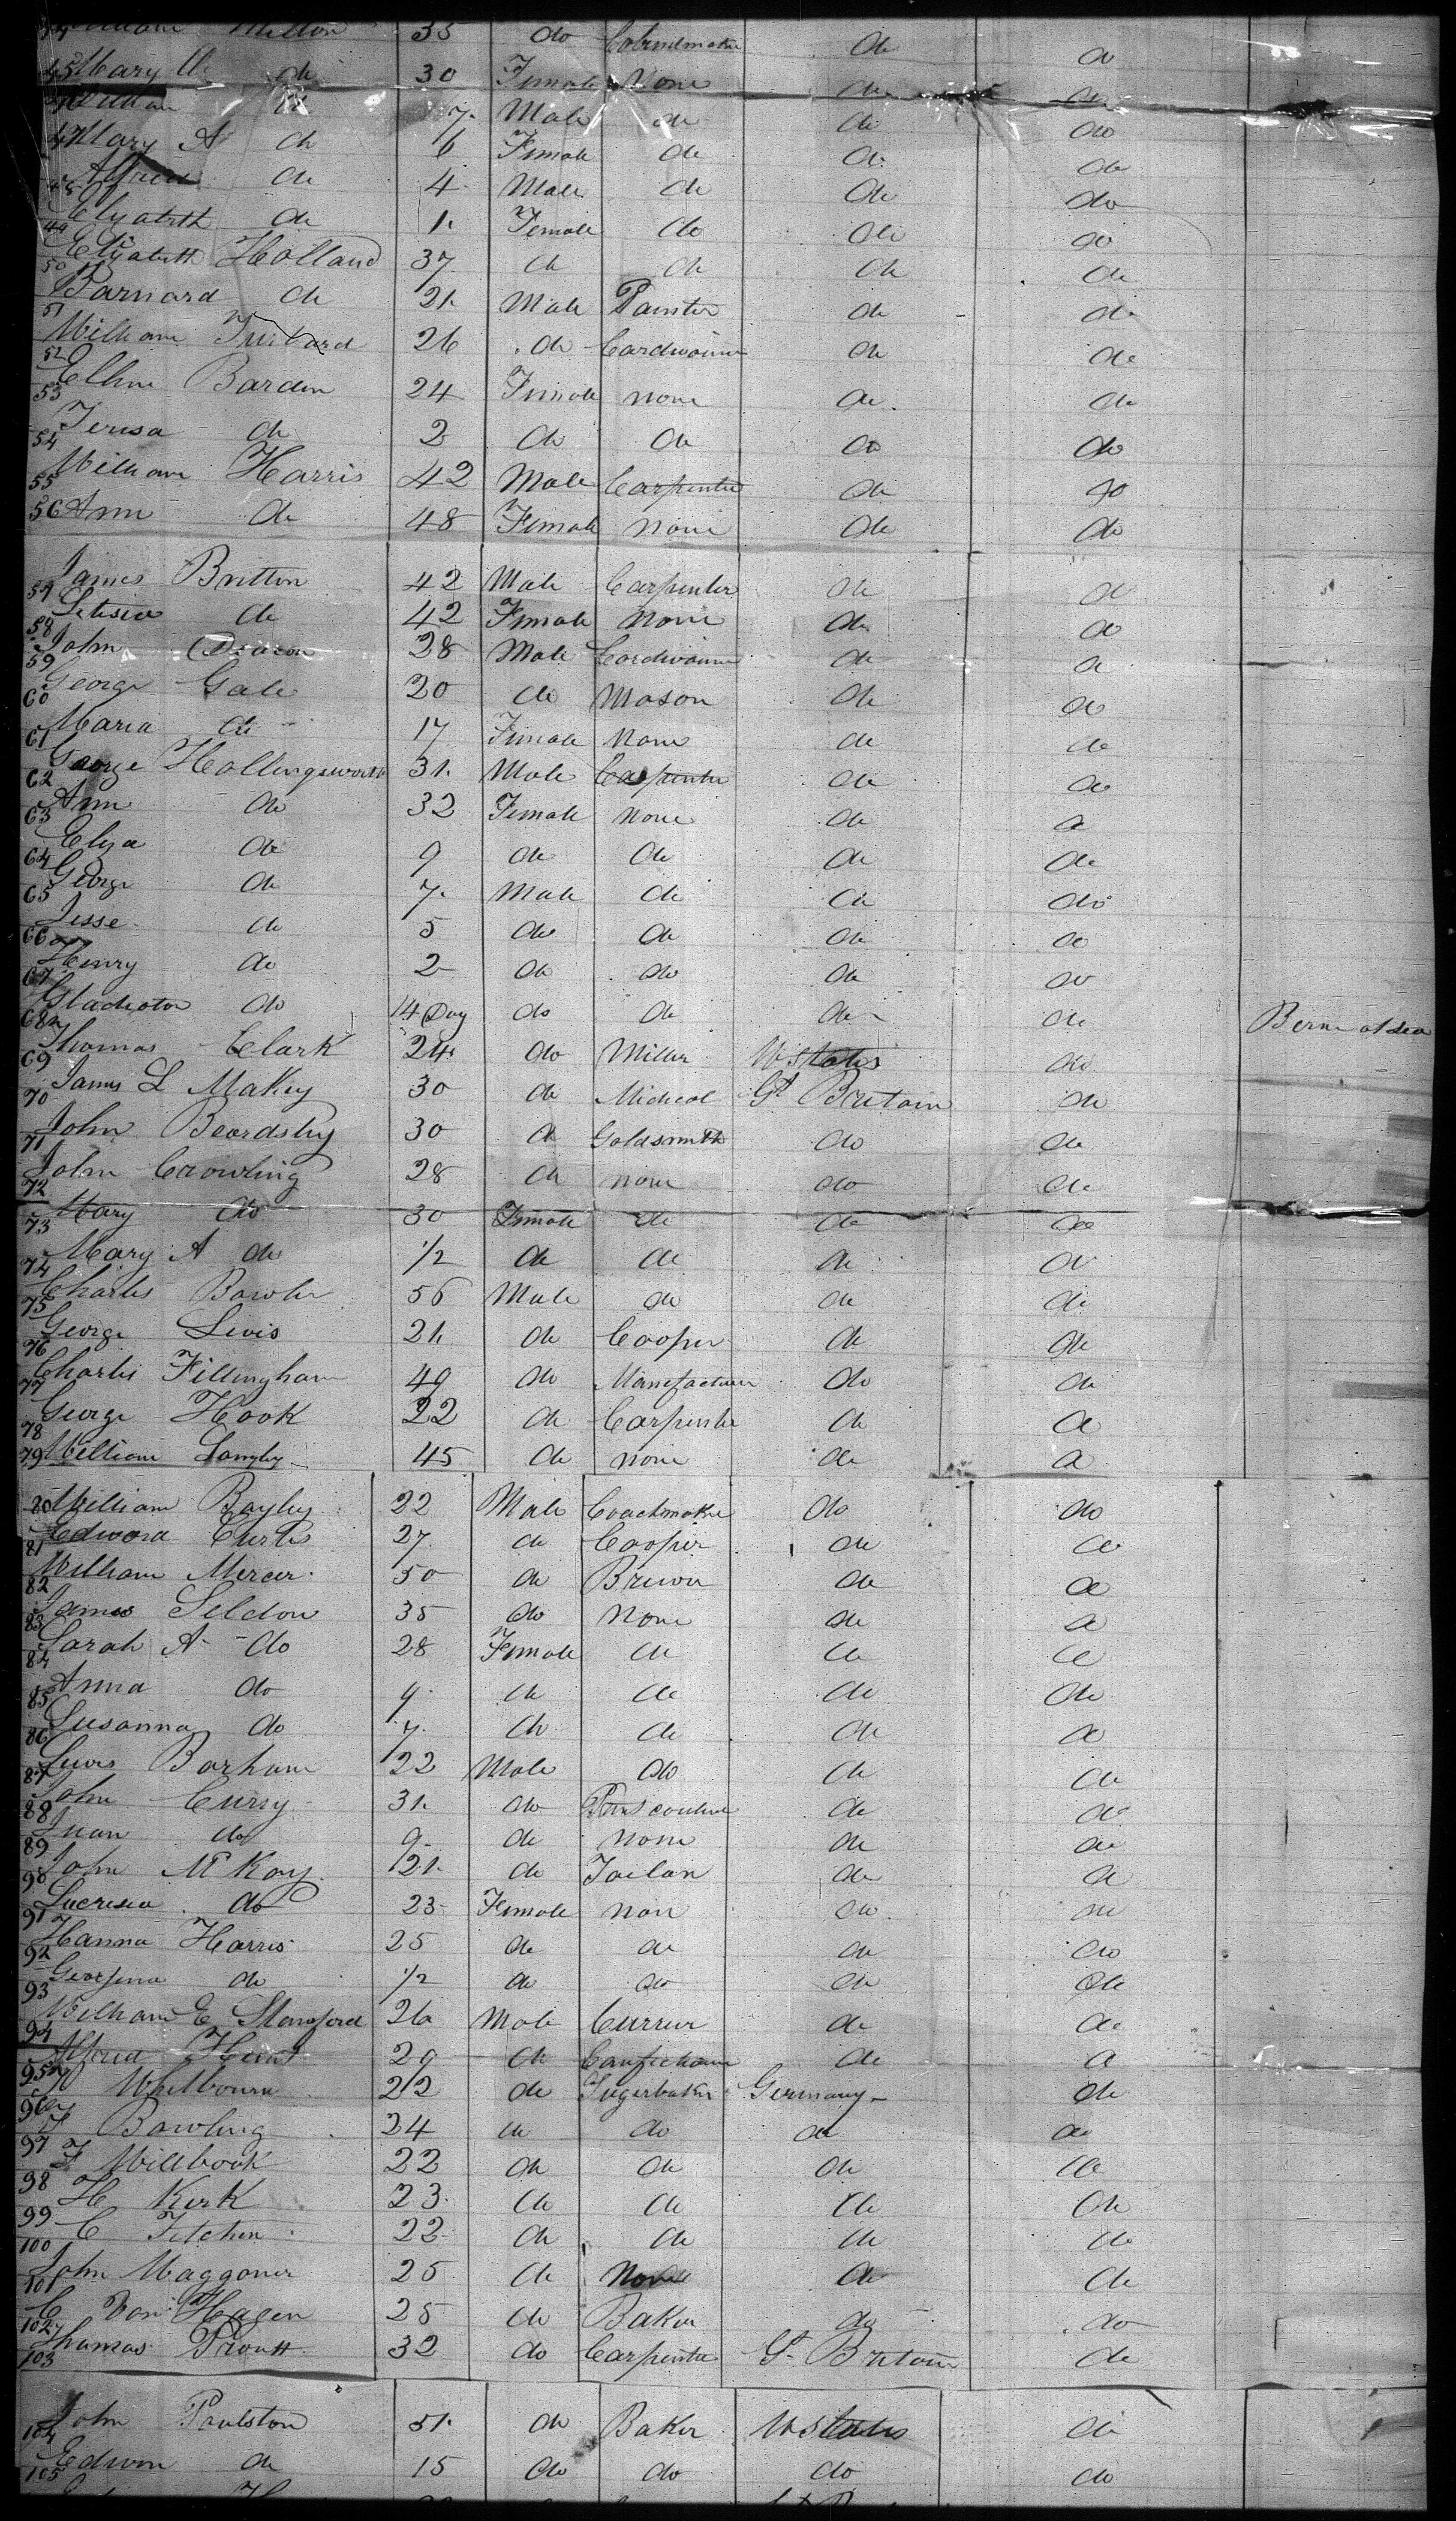 44 William Melton 35 do Cabinetmaker do do
45 Mary A. do 30 Female None do do
46 William do 7 Male do do do
47 Mary A do 6 Female do do do
48 Alfred do 4 Male do do do
49 Elizabeth do 1 Female do do do
50 Elizabeth Holland 37 do do do do
51 Barnard do 21 Male Painter do do
52 William 26 do Cordwainer do do
53 Ellen Barden 24 Female none do do
54 Teresa do 2 do do do do
55 William Harris 42 Male Carpenter do do
56 Ann do 48 Female none do do
57 James Britton 42 Male Carpenter do do
58 Letisia do 42 Female none do do
59 John Deacon 28 Male Cordwainer do do
60 George Gale 20 do Mason do do
61 Maria do 17 Female None do do
62 George Hollingsworth 31 Male Carpenter do do
63 Ann do 32 Female none do do
64 Eliza do 9 do do do do
65 George do 7 Male do do do
66 Jesse do 5 do do do do
67 Henry do 2 do do do do
68 Gladiator do 14 Day do do do do Borne at sea
69 Thomas Clark 24 do Miller U States do
70 James L Makey 30 do Medical Gt Britain do
71 John Beardsley 30 do Goldsmith do do
72 John Crowling 28 do none do do
73 Mary do 30 Female do do do
74 Mary A do 1/2 do do do do
75 Charles Bowler 56 Male do do do
76 George Lewis 21 do Cooper do do
77 Charles Fillingham 49 do Manefacturer do do
78 George Hook 22 do Carpenter do do
79 William Langley 45 do none do do
80 William Bayley 22 Male Coachmaker do do
81 Edward Curtis 27 do Cooper do do
82 William Mercer 50 do Brewer do do
83 James Seldon 35 do None do do
84 Sarah A do 28 Female do do do
85 Anna do 9 do do do do
86 Susanna do 7 do do do do
87 Lewis Barham 22 Male do do do
88 John Curry 31 do do do
89 Juan do 9 do none do do
90 John McKay 21 do Tailor do do
91 Lucresia do 23 Female non do do
92 Hanna Harris 25 do do do do
93 Georgina do 1/2 do do do do
94 William E Stansford 26 Male Currier do do
95 Alfred Hunt 29 do Confectioner do do
96 Whelbourn 22 do Sugerbaker Germany do
97 F Bowling 24 do do do do
98 F Millbook 22 do do do do
99 H Kirk 23 do do do do
100 C Fitchen 22 do do do do
101 John Waggoner 25 do None do do
102 C Von Hagen 25 do Baker do do
103 Thomas Proutt 32 do Carpenter Gt Britain do
104 John Poulston 51 do Baker U States do
105 Edwin do 15 do do do do